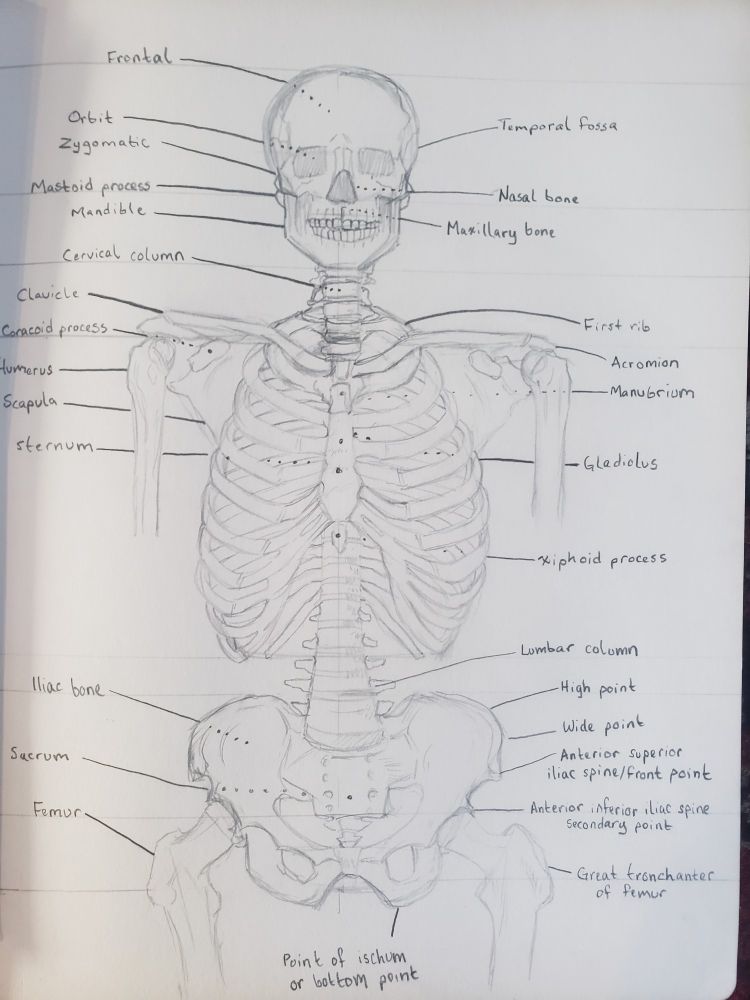 Frontal
Orbit
Zygomatic
Mastoid process
Mandible
Cervical column
Clavicle
Coracoid process
Humerus
Scapula
sternum
Iliac bone
Sacrum
Femur
Temporal fossa
Nasal bone
Maxillary bone
First rib
Acromion
Manubrium
Gladiolus
xiphoid process
Lumbar column
High point
Wide point
Anterior superior
iliac spine/front point
Anterior inferior iliac spine
secondary point
Great tronchanter
of femur
Point of ischum
or bottom point